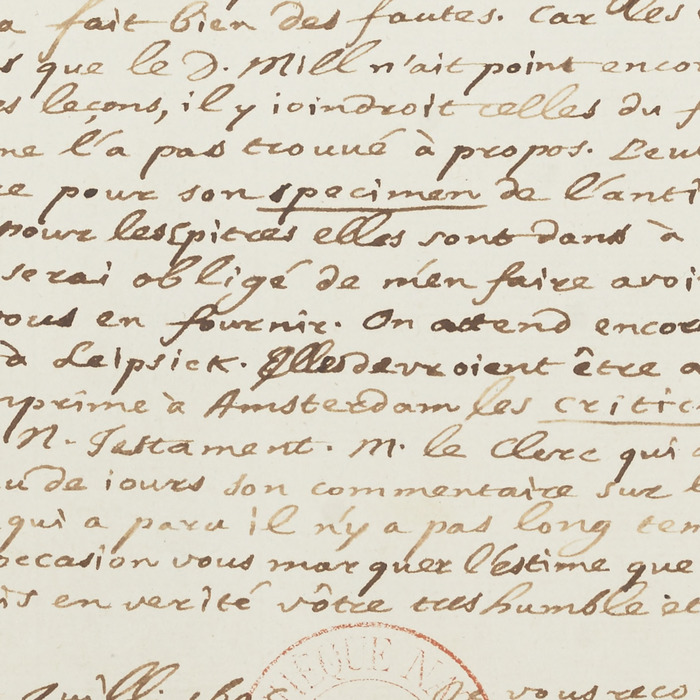 a fait bien des fautes. Car les
s que le D. Mill n'ait point encor
s leçons, il y ioindroit celles du f
ne l'a pas trouué à propos. Leut
ce pour son specimen de l'anti
pour les Epitres elles sont dans à
serai obligé de m'en faire avoi
vous en fournir. On attend encor
à Leipsick. Elles devroient être a
mprime à Amsterdam les critic
N. Testament. M. le Clerc qui a
u de iours son commentaire sur l
qui a paru il n'y a pas long tem
occasion vous marquer l'estime que
is en verité vôtre tres humble et
HEQUE NA
vous